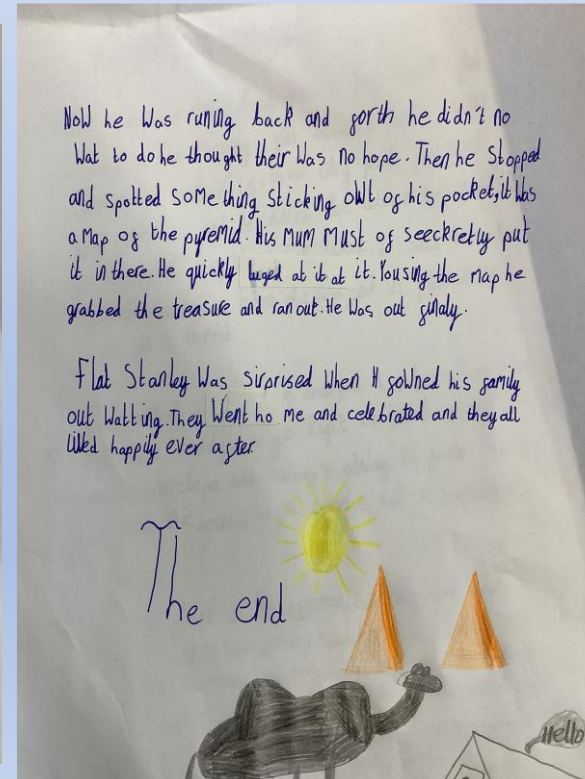 Now he was runing back and forth he didn't no
wat to do he thought their was no hope. Then he stopped
and spotted something sticking owt of his pocket, it was
a map of the pyremid. His mum must of seeckretly put
it in there. He quickly at it at it. Yousing the map he
grabbed the treasure and ran out. He was out finaly.
Flat Stanley was sirprised when fowned his family
out watting. They went home and celebrated and they all
lived happily ever after.
The end
Hello